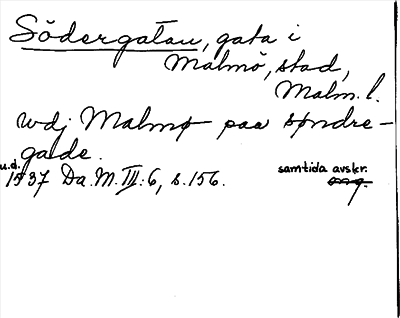 Södergatan, gata i
Malmö, stad,
Malm. l.
wdj Malmø paa søndre-
gade.
u.d.
1537 Da.M. III:6, s.156.
samtida avskr.
orig.